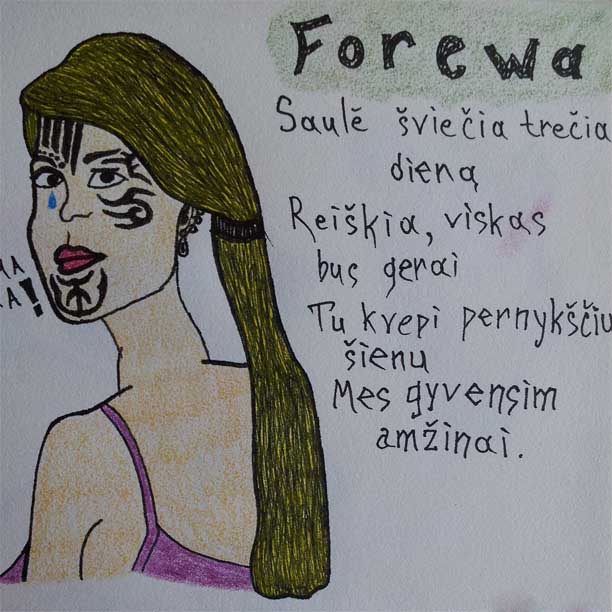 Forewa
Saulė šviečia trečia
dieną
Reiškia, viskas
bus gerai
Tu kvepi pernykščiu
šienu
Mes gyvensim
amžinai.